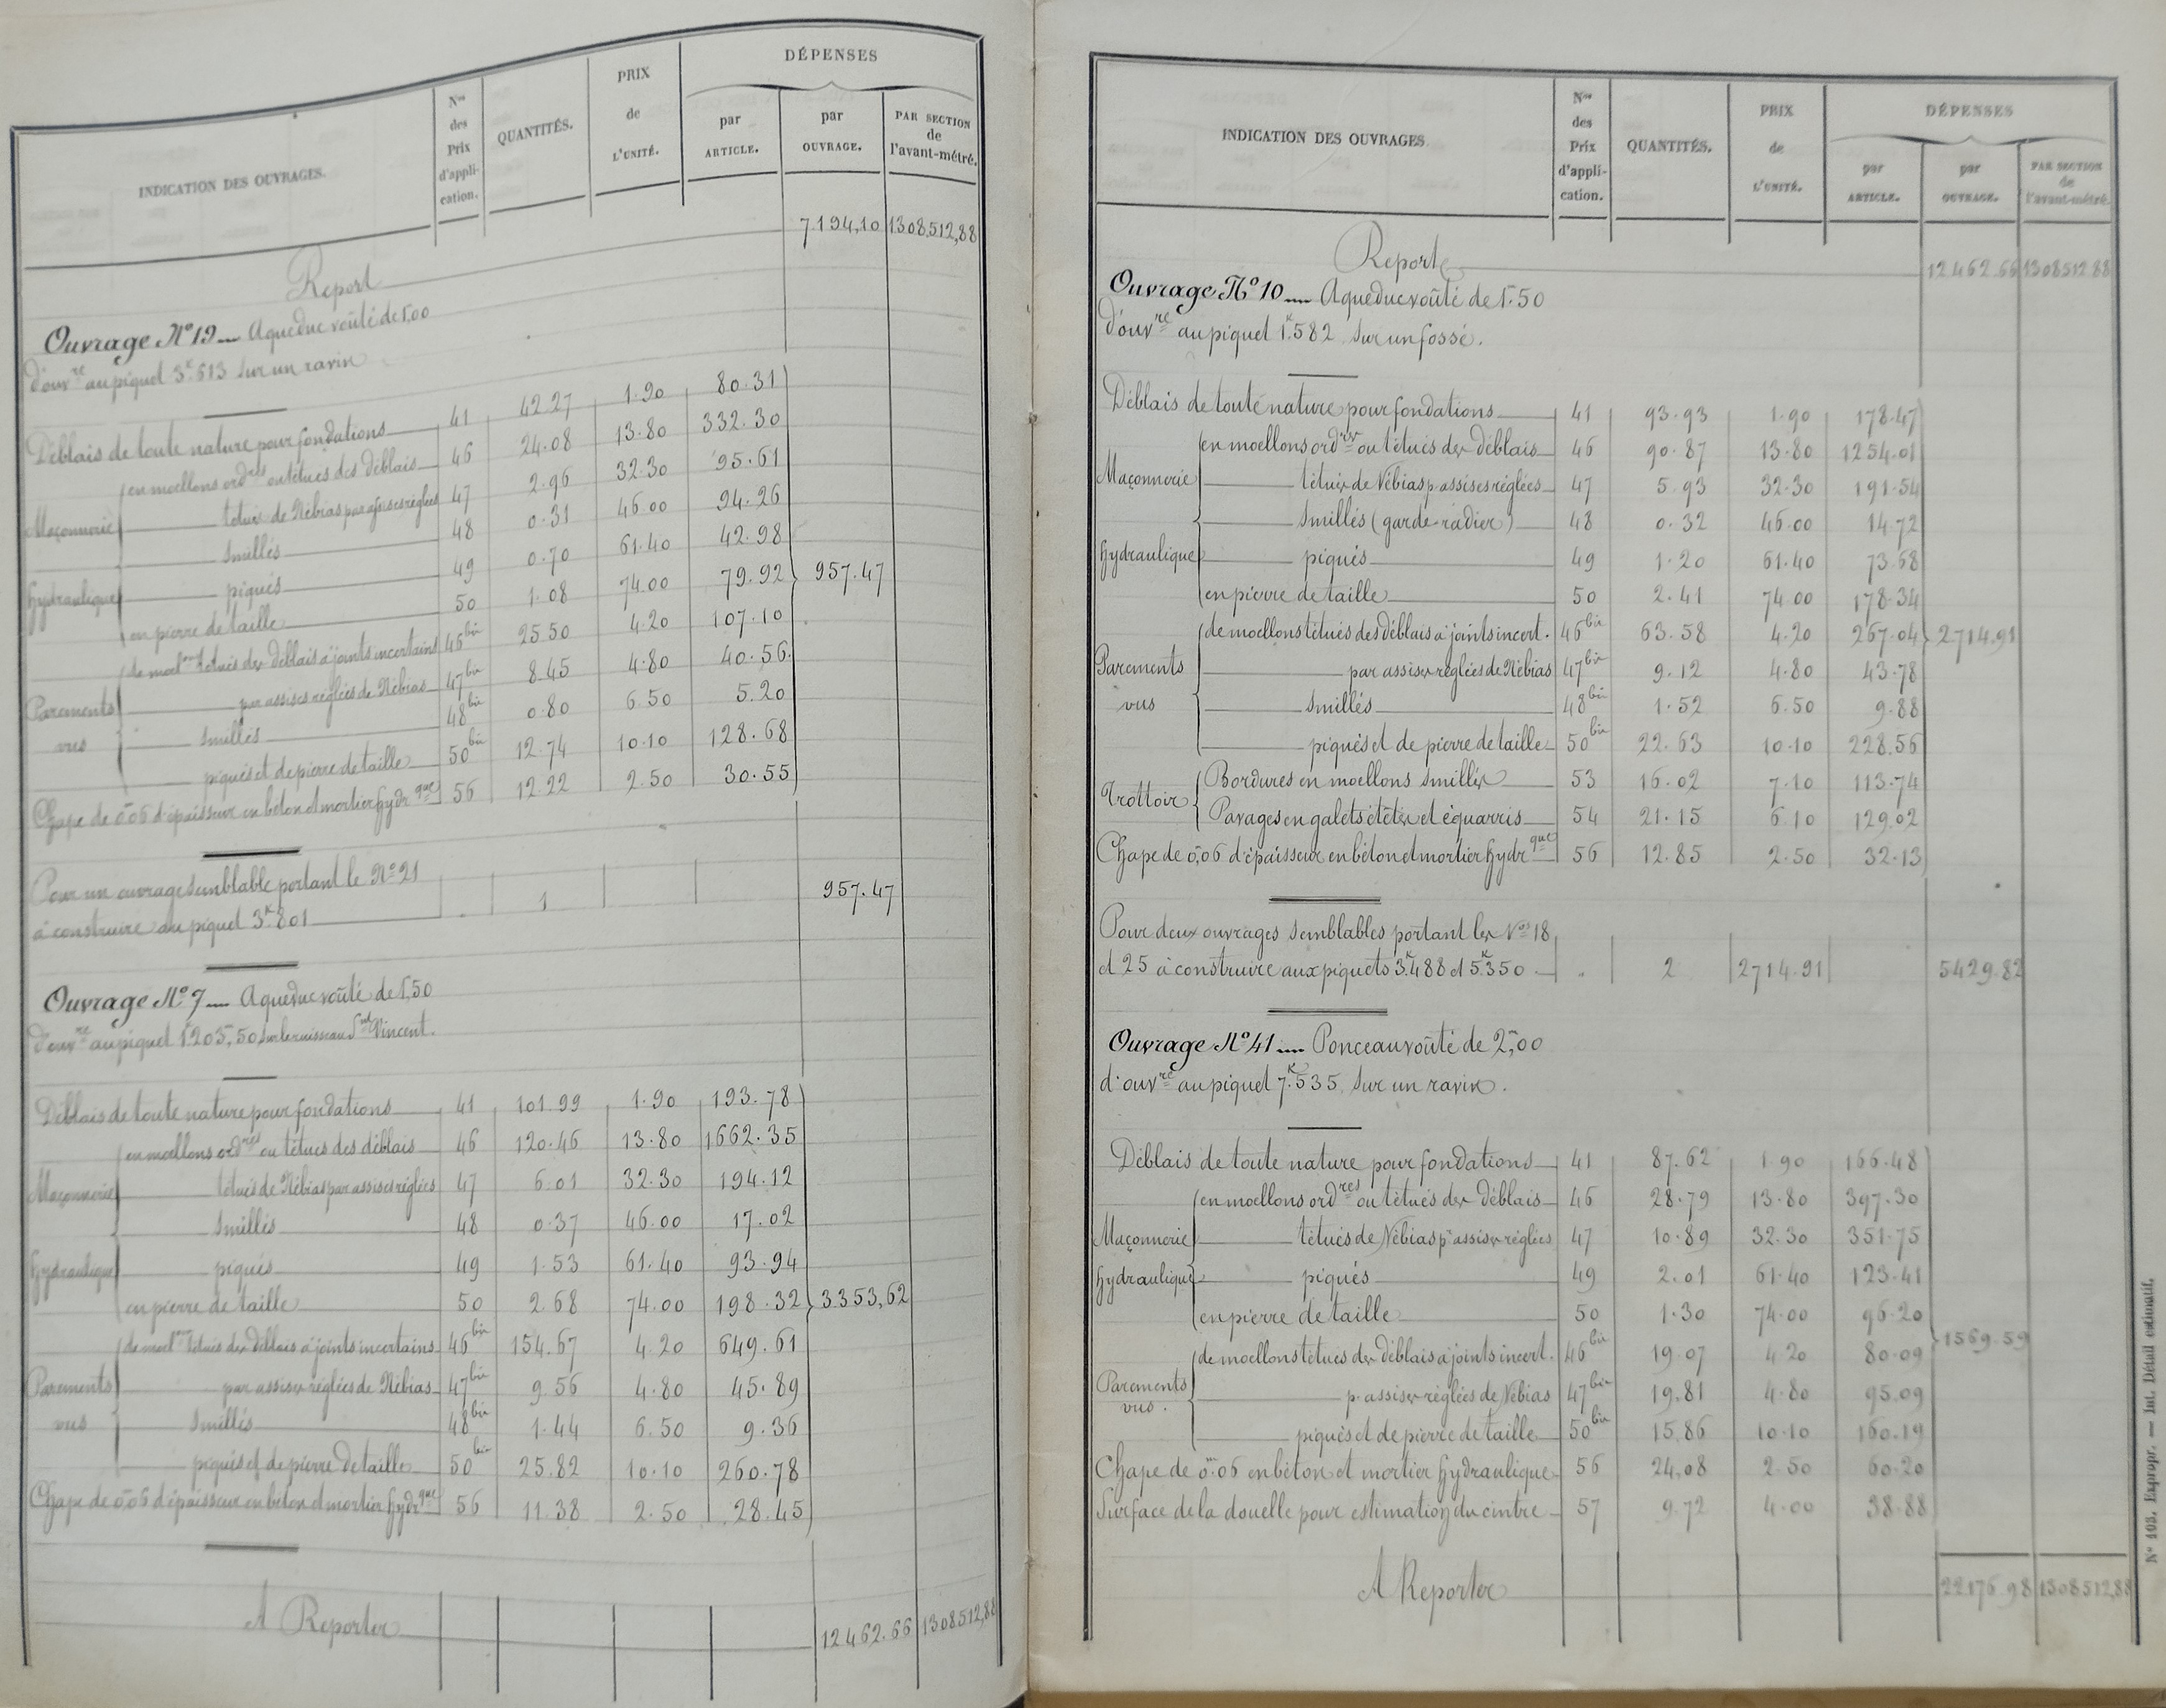 INDICATION DES OUVRAGES. Nos des Prix d'application. QUANTITÉS. PRIX de L'UNITÉ. DÉPENSES par ARTICLE. par OUVRAGE. PAR SECTION de l'avant-métré.
Report 7.194,10 1308.512,88
Ouvrage No 19 — Aqueduc voûté de 1m,00
d'ouvre au piquet 3k.613 sur un ravin
Déblais de toute nature pour fondations 41 42.27 1.90 80.31
Maçonnerie hydraulique en moellons ordres ou têtués des déblais 46 24.08 13.80 332.30
têtués de Nébias par assises réglées 47 2.96 32.30 95.61
smillés 48 0.31 46.00 94.26
piqués 49 0.70 61.40 42.98
en pierre de taille 50 1.08 74.00 79.92 957.47
Parements vus de moelons têtués des déblais à joints incertains 46bis 25.50 4.20 107.10
par assises réglées de Nébias 47bis 8.45 4.80 40.56
smillés 48bis 0.80 6.50 5.20
piqués et de pierre de taille 50bis 12.74 10.10 128.68
Chape de 0m,06 d'épaisseur en béton et mortier hydrque 56 12.22 2.50 30.55
Pour un ouvrage semblable portant le No 21
à construire au piquet 3k801 1 957.47
Ouvrage No 7 — Aqueduc voûté de 1m,50
d'ouvre au piquet 1k203,50 sur le ruisseau St Vincent.
Déblais de toute nature pour fondations 41 101.99 1.90 193.78
Maçonnerie hydraulique en moellons ordres ou têtués des déblais 46 120.46 13.80 1662.35
têtués de Nébias par assises réglées 47 6.01 32.30 194.12
smillés 48 0.37 46.00 17.02
piqués 49 1.53 61.40 93.94
en pierre de taille 50 2.68 74.00 198.32 3353,62
Parements vus de moelons têtués des déblais à joints incertains 46bis 154.67 4.20 649.61
par assises réglées de Nébias 47bis 9.56 4.80 45.89
smillés 48bis 1.44 6.50 9.36
piqués et de pierre de taille 50bis 25.82 10.10 260.78
Chape de 0m,06 d'épaisseur en béton et mortier hydrque 56 11.38 2.50 28.45
A Reporter 12462.66 1308512,88
INDICATION DES OUVRAGES. Nos des Prix d'application. QUANTITÉS. PRIX de L'UNITÉ. DÉPENSES par ARTICLE. par OUVRAGE. PAR SECTION de l'avant-métré.
Report 12462.66 1308512.88
Ouvrage No 10 — Aqueduc voûté de 1m.50
d'ouvre au piquet 1k.582 sur un fossé.
Déblais de toute nature pour fondations 41 93.93 1.90 178.47
Maçonnerie hydraulique en moellons ordres ou têtués des déblais 46 90.87 13.80 1254.01
têtués de Nébias p. assises réglées 47 5.93 32.30 191.54
smillés (garde-radier) 48 0.32 46.00 14.72
piqués 49 1.20 61.40 73.68
en pierre de taille 50 2.41 74.00 178.34
Parements vus de moellons têtués des déblais à joints incert. 46bis 63.58 4.20 267.04 2714.91
par assises réglées de Nébias 47bis 9.12 4.80 43.78
smillés 48bis 1.52 6.50 9.88
piqués et de pierre de taille 50bis 22.63 10.10 228.56
Trottoir Bordures en moellons smillés 53 16.02 7.10 113.74
Pavages en galets étêtés et équarris 54 21.15 6.10 129.02
Chape de 0m,06 d'épaisseur en béton et mortier hydrque 56 12.85 2.50 32.13
Pour deux ouvrages semblables portant les Nos 18
et 25 à construire aux piquets 3k488 et 5k350 2 2714.91 5429.82
Ouvrage No 41 — Ponceau voûté de 2m,00
d'ouvre au piquet 7k.535 sur un ravin.
Déblais de toute nature pour fondations 41 87.62 1.90 166.48
Maçonnerie hydraulique en moellons ordres ou têtués des déblais 46 28.79 13.80 397.30
têtués de Nébias pr assises réglées 47 10.89 32.30 351.75
piqués 49 2.01 61.40 123.41
en pierre de taille 50 1.30 74.00 96.20
Parements vus. de moellons têtués des déblais à joints incert. 46bis 19.07 4.20 80.09 1569.59
p. assises réglées de Nébias 47bis 19.81 4.80 95.09
piqués et de pierre de taille 50bis 15.86 10.10 160.19
Chape de 0m.06 en béton et mortier hydraulique 56 24.08 2.50 60.20
Surface de la douelle pour estimation du cintre 57 9.72 4.00 38.88
A Reporter 22176.98 1308512,88
No 103. Expropr. — Int. Détail estimatif.